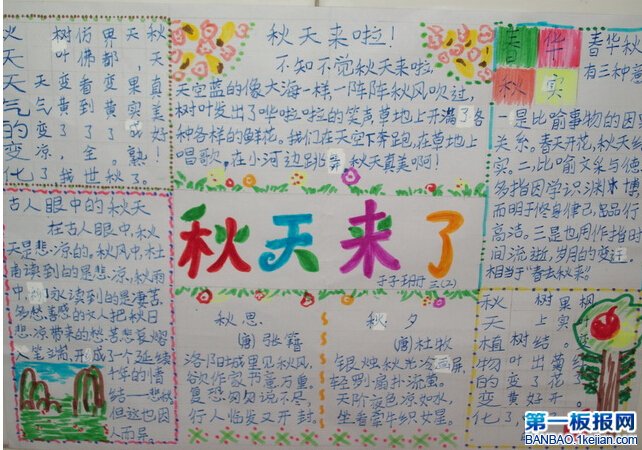 天气的变化
天气变凉了
树叶变黄了，我
仿佛看到了全世
界都变黄了。秋
天，果实成熟了。
秋天真美好！
秋天来啦！
不知不觉秋天来啦，
天空蓝的像大海一样一阵阵秋风吹过，
树叶发出了哗啦啦的笑声草地上开满了各
种各样的鲜花。我们在天空下奔跑，在草地上
唱歌，在小河边跳舞，秋天真美啊！
春华
秋实
春华秋
有三种
一是比喻事物的因
关系。春天开花，秋天结
实。二，比喻文采与德
多指因学识渊博
而明于修身律己，品行
高洁。三是也用作指时
间流逝，岁月的变迁
相当于"春去秋来"。
古人眼中的秋天
在古人眼中，秋
天是悲凉的。秋风中，杜
甫读到的是悲凉，秋雨
中，永读到的是凄苦，
多愁善感的文人把秋日
悲凉带来的愁苦
但这也因
人而异。
秋天来了
三(2)
秋思
唐 张籍
洛阳城里见秋风，
欲作家书意万重。
复恐匆匆说不尽，
行人临发又开封。
秋夕
唐 杜牧
银烛秋光冷画屏，
轻罗小扇扑流萤。
天阶夜色凉如水，
坐看牵牛织女星。
秋天植物的变化
第一板报网
BANBAO.1kejian.com